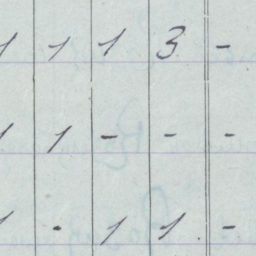 1 1 1 3 -
1 1 - - -
1 - 1 1 -